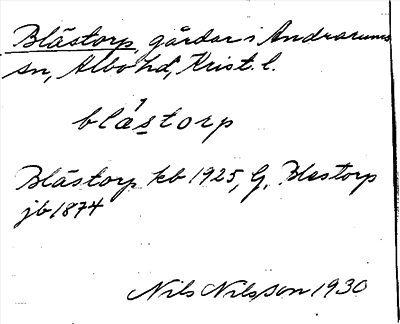 Blåstorp, gårdar i Andrarums
sn, Albo hd, Krist. l.
blåstorp
Blåstorp kb 1925, G. Blestorp
jb 1874
Nils Nilsson 1930